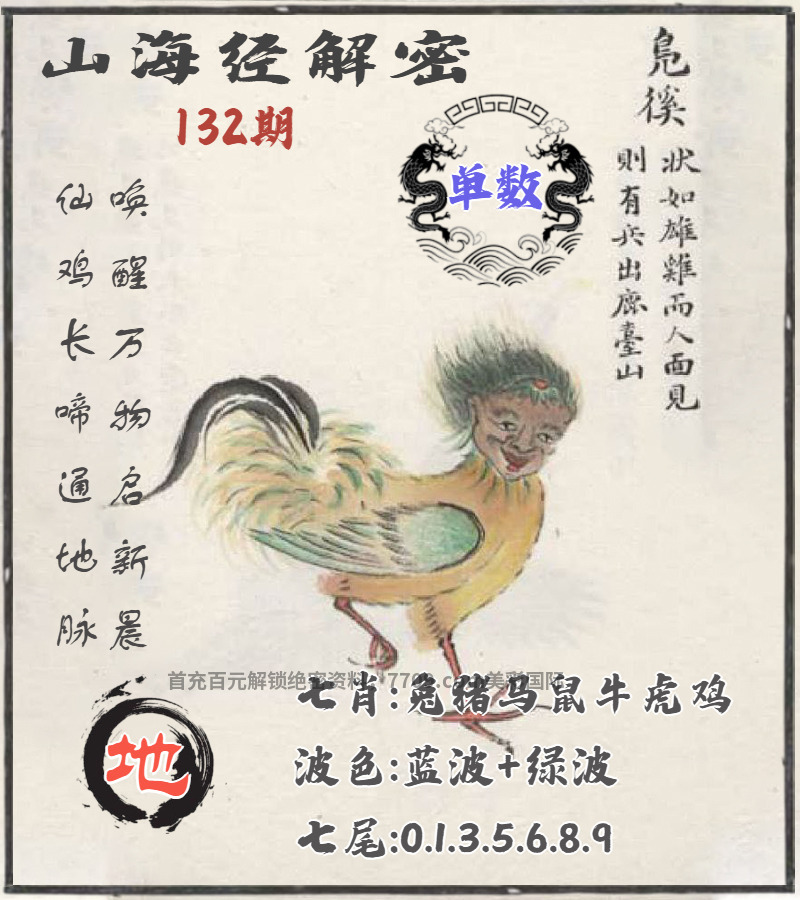 山海经解密
132期
凫徯
狀如雄雞而人面見
則有兵出鹿臺山
单数
仙鸡长啼通地脉
唤醒万物启新晨
首充百元解锁绝密资料
美彩国际
七肖:兔猪马鼠牛虎鸡
地
波色:蓝波+绿波
七尾:0.1.3.5.6.8.9